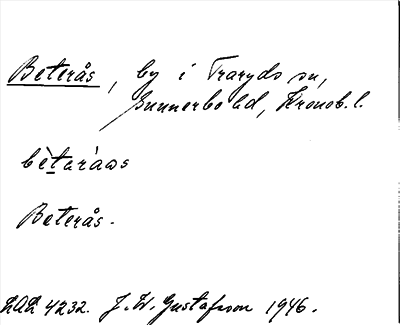 Beterås, by i Traryds sn,
Sunnerbo hd, Kronob. l.
bètaràas
Beterås.
LAL 4232. J. W. Gustafsson 1946.